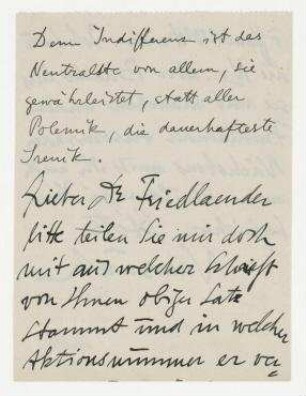 Denn Indifferenz ist das
Neutralste von allem, sie
gewährleistet, statt aller
Polemik, die dauerhafteste
Irenik.
Lieber Dr Friedlaender
bitte teilen Sie mir doch
mit aus welcher Schrift
von Ihnen obiger Satz
stammt und in welcher
Aktionsnummer er ver